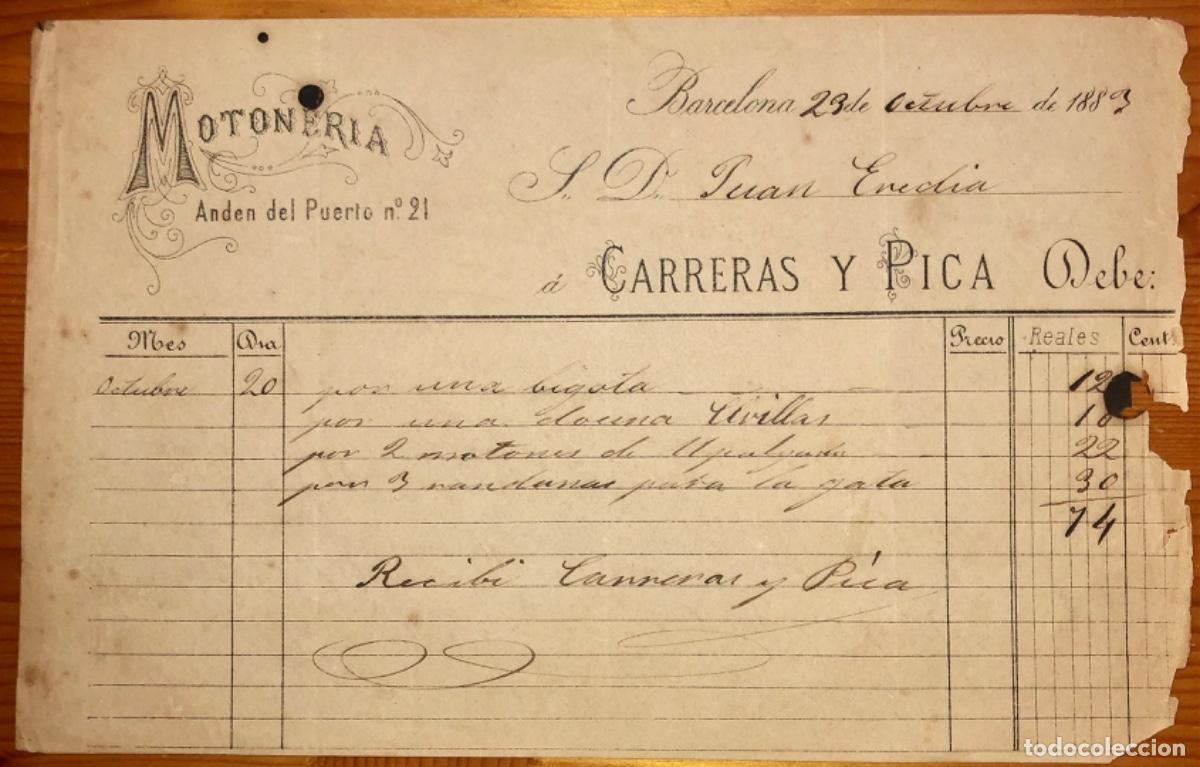 MOTONERIA
Anden del Puerto nº 21
Barcelona 23 de Octubre de 1883
S. D. Juan Eredia
á CARRERAS Y PICA Debe:
Mes Dia Precio Reales Cent
Octubre 20 por una bigota 12
por una docena 10
por 2 motones de 22
por 3 randanas para la gata 30
74
Recibi Carreras y Pica
todocoleccion